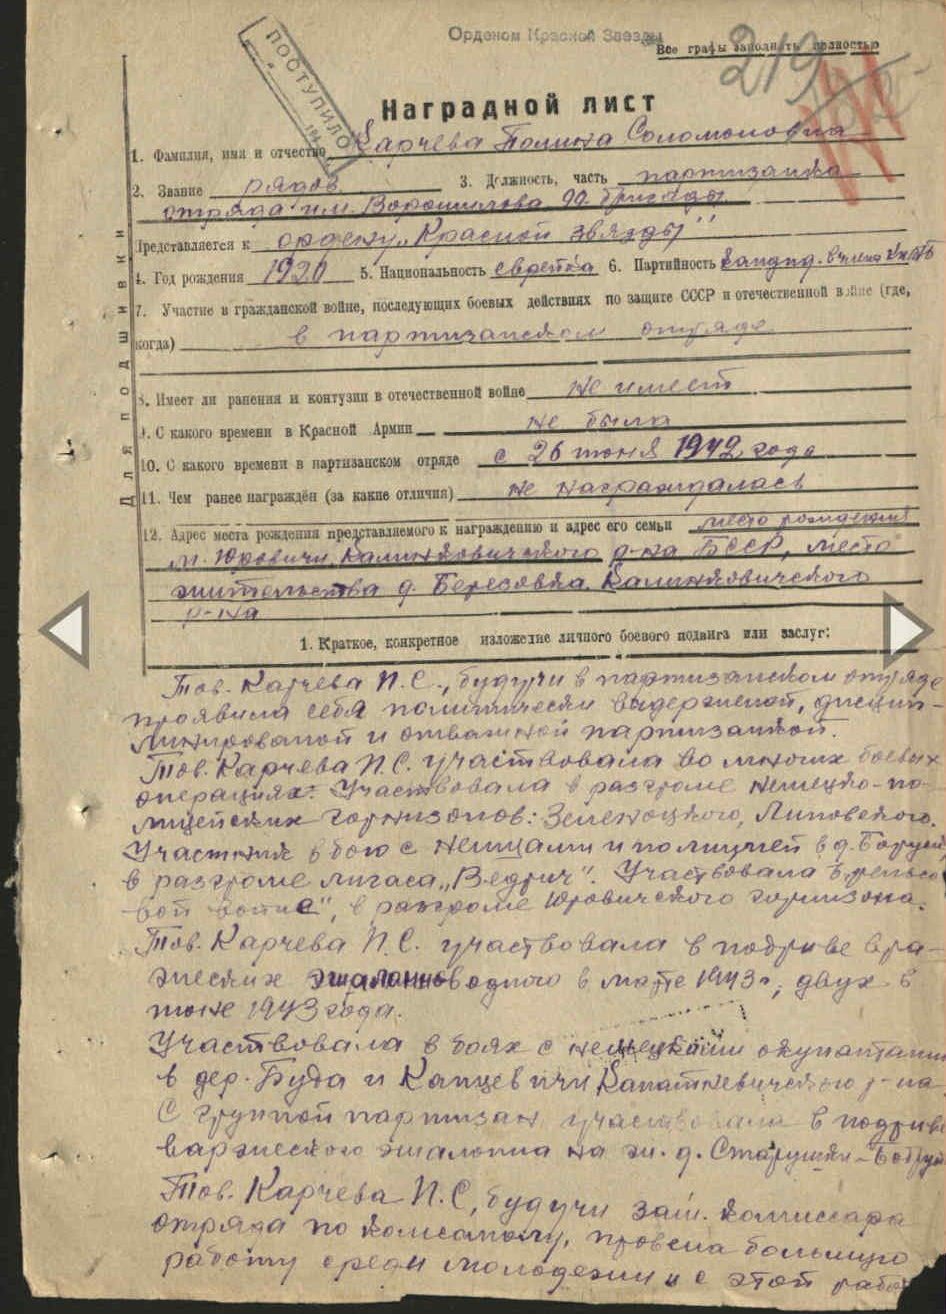 Орденом Красной Звезды
Все графы заполнять полностью
219
ПОСТУПИЛО
Наградной лист
1. Фамилия, имя и отчество Карчева Полина Соломоновна
2. Звание рядов. 3. Должность, часть партизанка
отряда им. Ворошилова 99 бригады
Представляется к ордену „Красной звязды"
4. Год рождения 1920 5. Национальность еврейка 6. Партийность кандид. в члены ВКПБ
7. Участие в гражданской войне, последующих боевых действиях по защите СССР и отечественной войне (где,
когда) в партизанском отряде
8. Имеет ли ранения и контузии в отечественной войне не имеет
9. С какого времени в Красной Армии не была
10. С какого времени в партизанском отряде с 26 июня 1942 года
11. Чем ранее награждён (за какие отличия) не награждалась
12. Адрес места рождения представляемого к награждению и адрес его семьи место рождения
м. Юровичи Калинковичского р-на БССР, место
жительства д. Березовка Калинковичского
р-на
Для подшивки
1. Краткое, конкретное изложение личного боевого подвига или заслуг:
Тов. Карчева П.С., будучи в партизанском отряде
проявила себя политически выдержаной, дисцип-
линированой и отважной партизанкой.
Тов. Карчева П.С. участвовала во многих боевых
операциях. Участвовала в разгроме немецко-по-
лицейских горнизонов: Зеленоцкого, Липовского.
Участник в бою с немцами и полицией в д.
в разгроме лигаса „Ведрич". Участвовала в „рельсо
вой войне", в разгроме Юровичского горнизона.
Тов. Карчева П.С. участвовала в подриве вра-
жеских эшалонов одного в марте 1943 г, двух в
июне 1943 года.
Участвовала в боях с немецкими окупантами
в дер. Буда и Капцевичи Капаткевичского р-на
С группой партизан участвовала в подриве
варжеского эшалонна на ж. д. Старушки-Бобруй
Тов. Карчева П.С, будучи зам. комиссара
отряда по комсамолу, провела большую
работу среди молодежи и с этой рабо